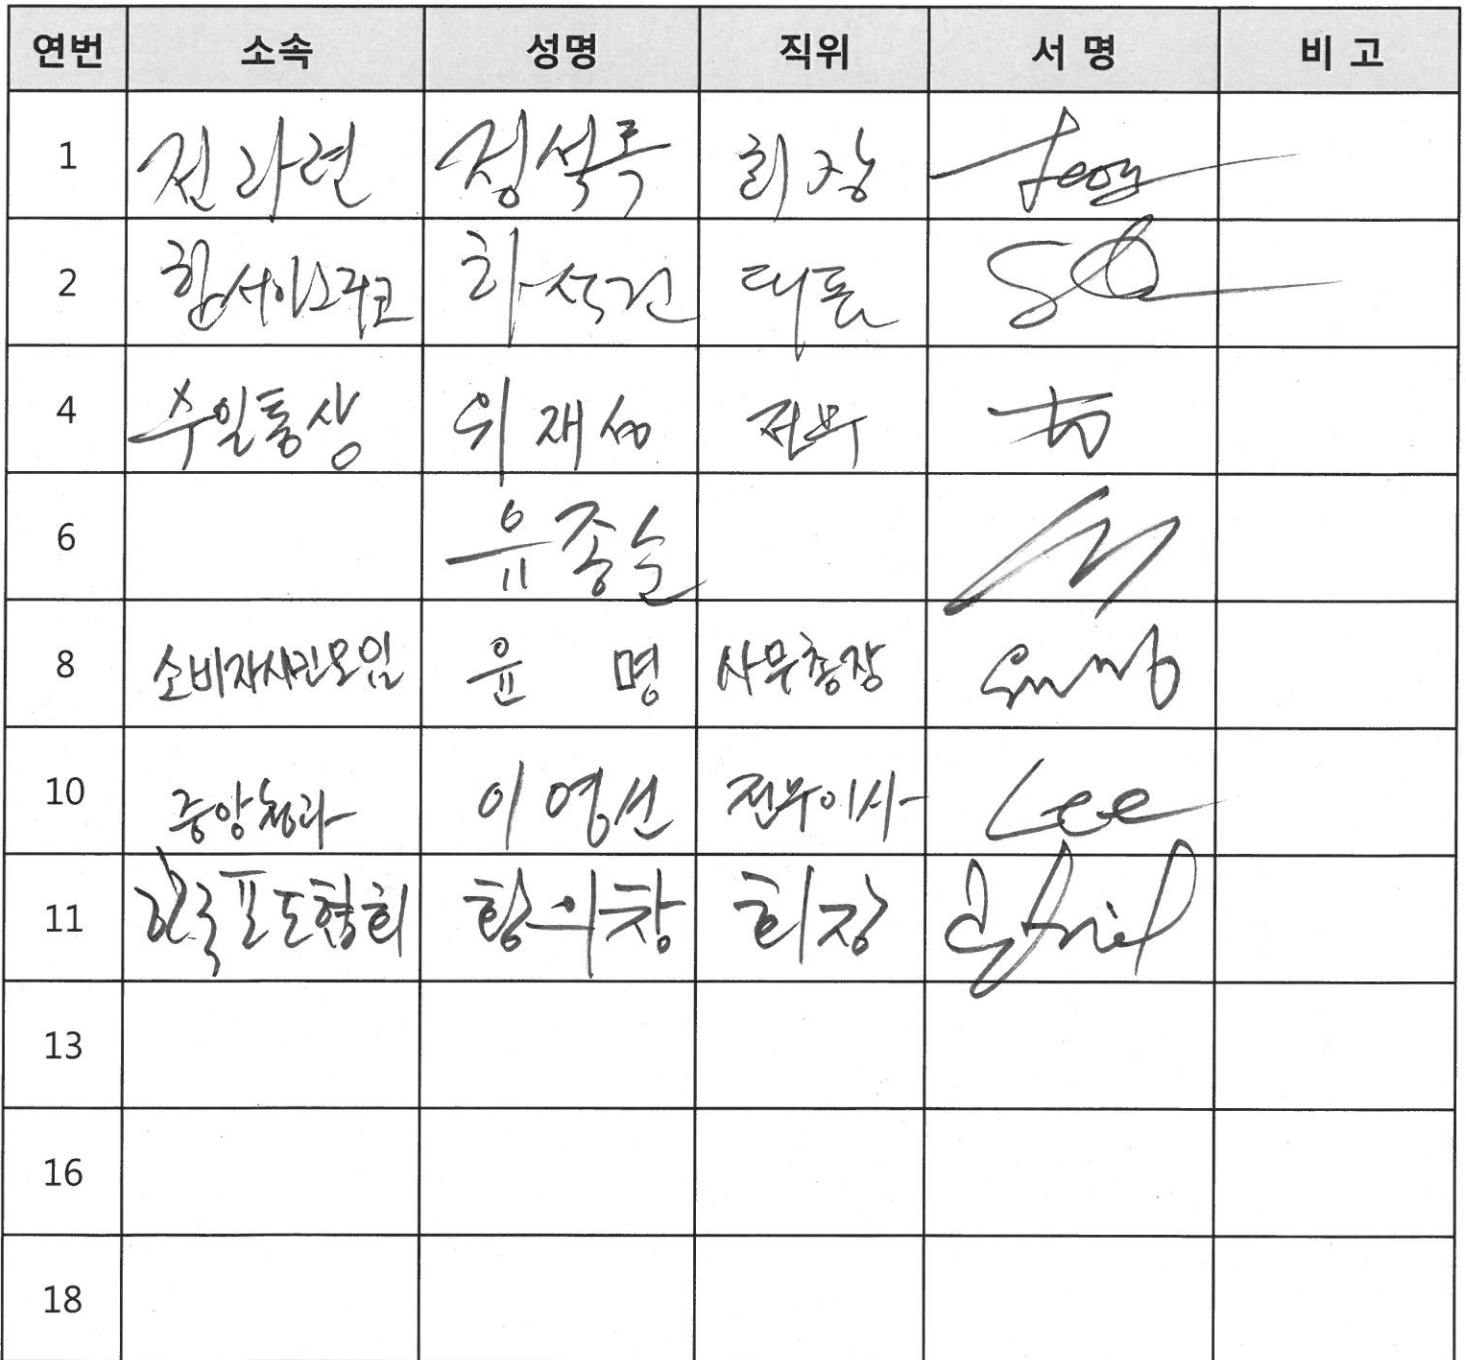 연번 소속 성명 직위 서 명 비 고
1 전과련 정석록 회장 Jeong
2 하석건 대표
4 수일통상 위재성 전무
6 유종순
8 소비자시민모임 윤 명 사무총장
10 중앙청과 이영선 전무이사 Lee
11 한국포도협회 황의창 회장
13
16
18